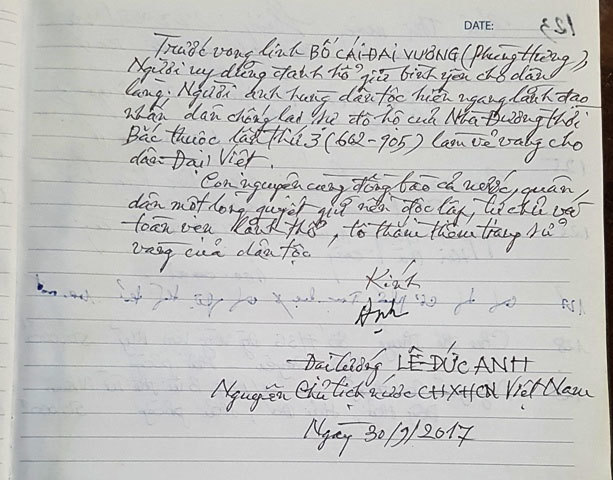 DATE:
123
Trước vong linh BỐ CÁI ĐẠI VƯƠNG (Phùng Hưng),
Người uy dũng đánh hổ giữ bình yên cho dân
làng. Người anh hùng dân tộc hiên ngang lãnh đạo
nhân dân chống lại sự đô hộ của Nhà Đường thời
Bắc thuộc lần thứ 3 (602-905) làm vẻ vang cho
dân Đại Việt.
Con nguyện cùng đồng bào cả nước, quân
dân một lòng quyết giữ nền độc lập, tự chủ và
toàn vẹn lãnh thổ, tô thắm thêm trang sử
vàng của dân tộc
Kính
Anh
Đại tướng LÊ ĐỨC ANH
Nguyên Chủ tịch nước CHXHCN Việt Nam
Ngày 30/9/2017